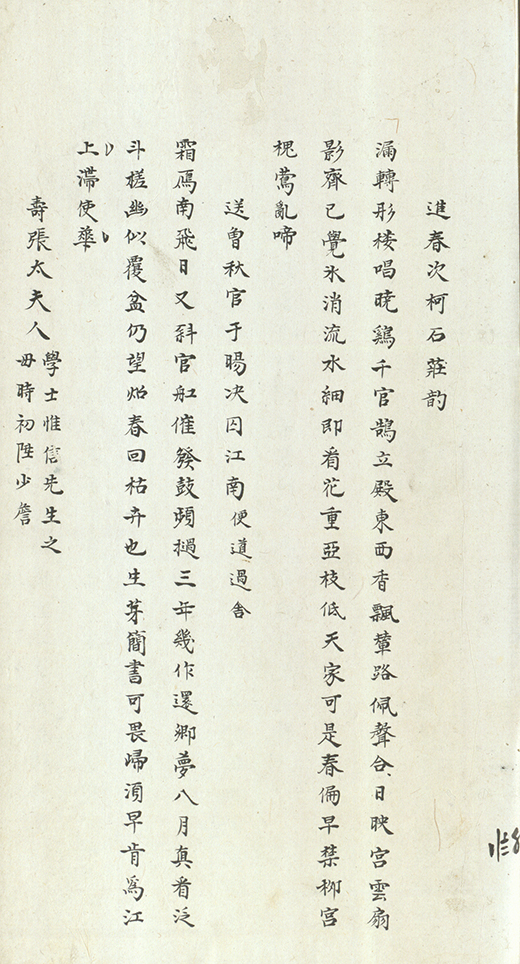 進春次柯石莊韵
漏轉彤楼唱暁鷄千官鵠立殿東西香飄輦路佩聲合日映宮雲扇
影齊已覺氷消流水細即看花重亞枝低天家可是春偏早禁柳宮
槐鶯亂啼
送曽秋官于暘决囚江南便道過舎
霜鴈南飛日又斜官舡催發鼓頻撾三年幾作還鄉夢八月真看泛
斗槎幽似覆盆仍望炤春回枯卉也生芽簡書可畏帰須早肯爲江
上滯使華
壽張太夫人學士惟信先生之
毋時初陞少詹